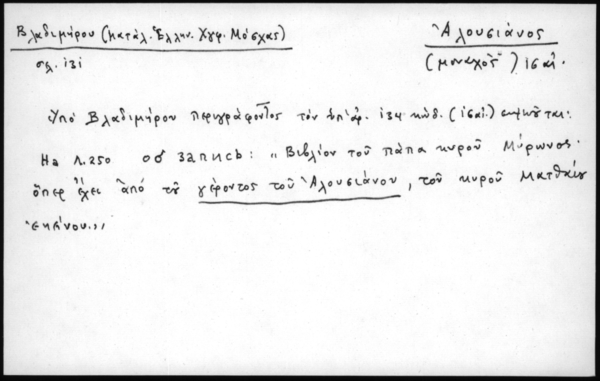 Βλαδιμήρου (Κατάλ. Ἑλλην. Χγφ. Μόσχας)
Ἀλουσιάνος
σλ. 131
(μοναχὸς) ις αἰ.
Ὑπὸ Βλαδιμήρου περιγράφοντος τὸν ὑπ' ἀρ. 134 κώδ. (ις αἰ.)
На л. 250 об запись: "Βιβλίον τοῦ πάπα κυροῦ Μύρωνος·
ὅπερ ἔχει ἀπὸ τοῦ γέροντος τοῦ Ἀλουσιάνου, τοῦ κυροῦ Ματθαίου
ἐκείνου."